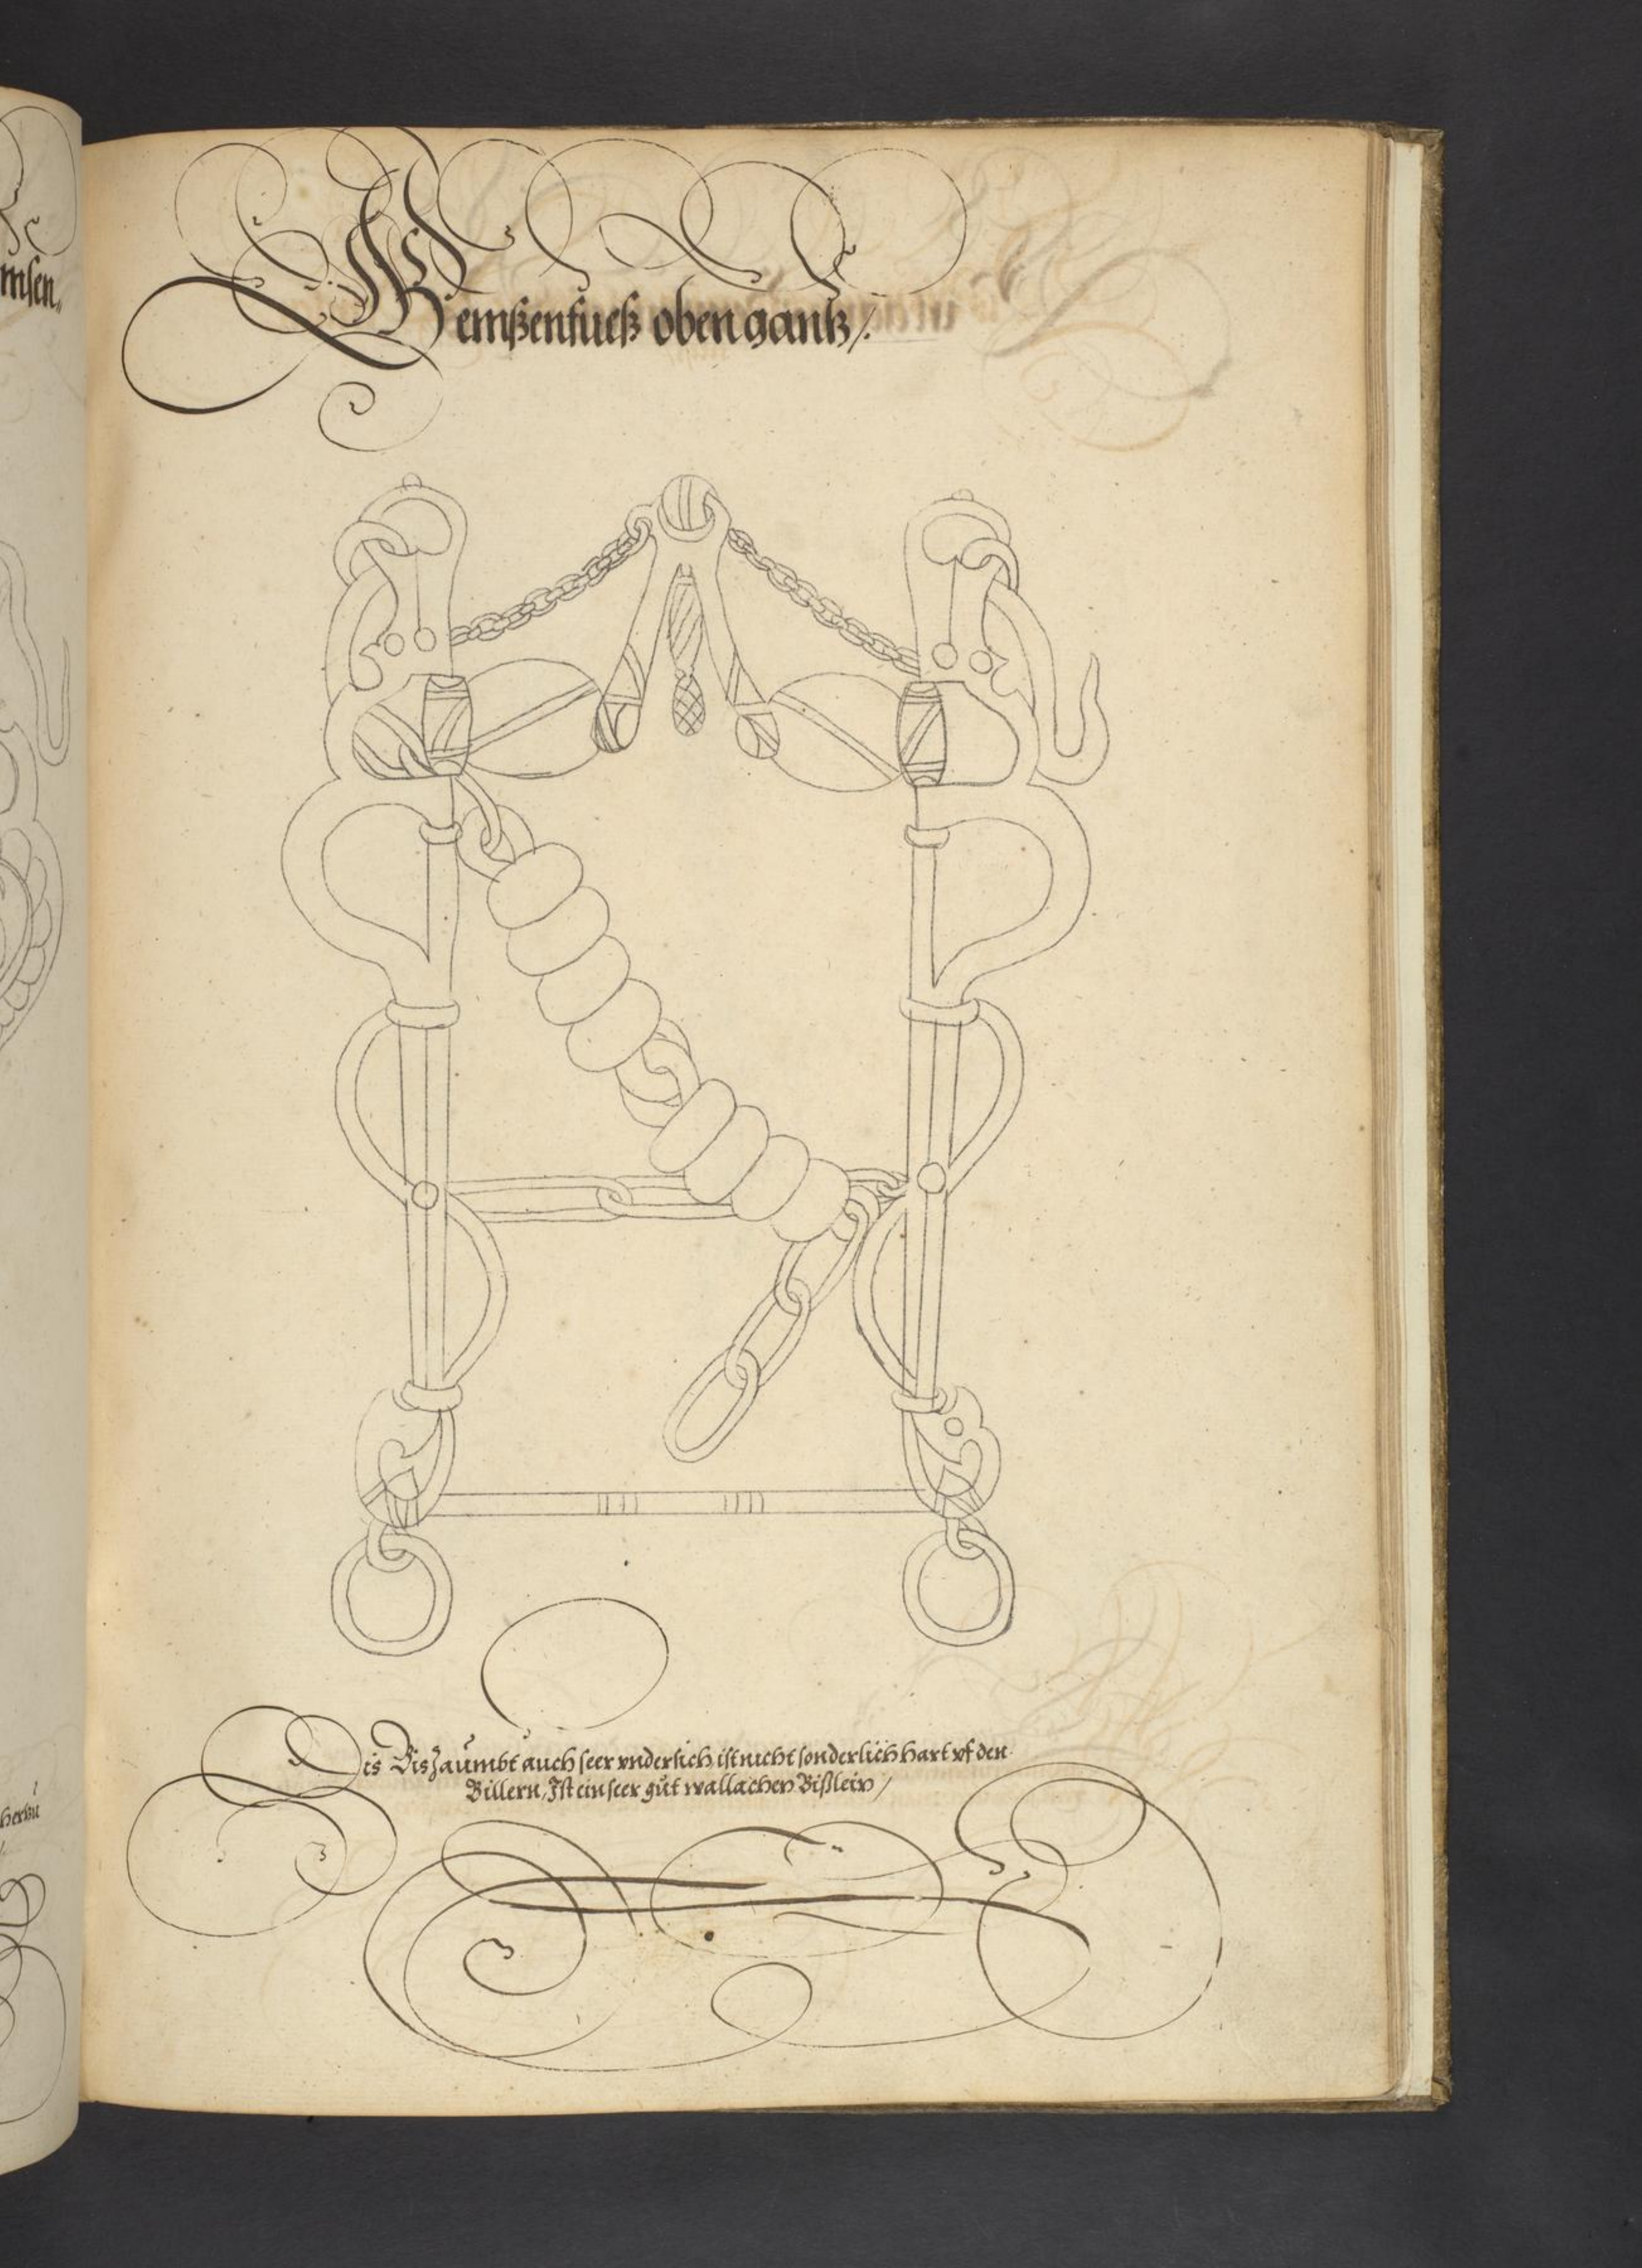 msen.
Gemßenfueß oben gantz /.
Dis Bis Zaumbt auch seer vndersich ist nicht sonderlich hart vf den
Billern, Ist ein seer gůt wallachen Bißlein /